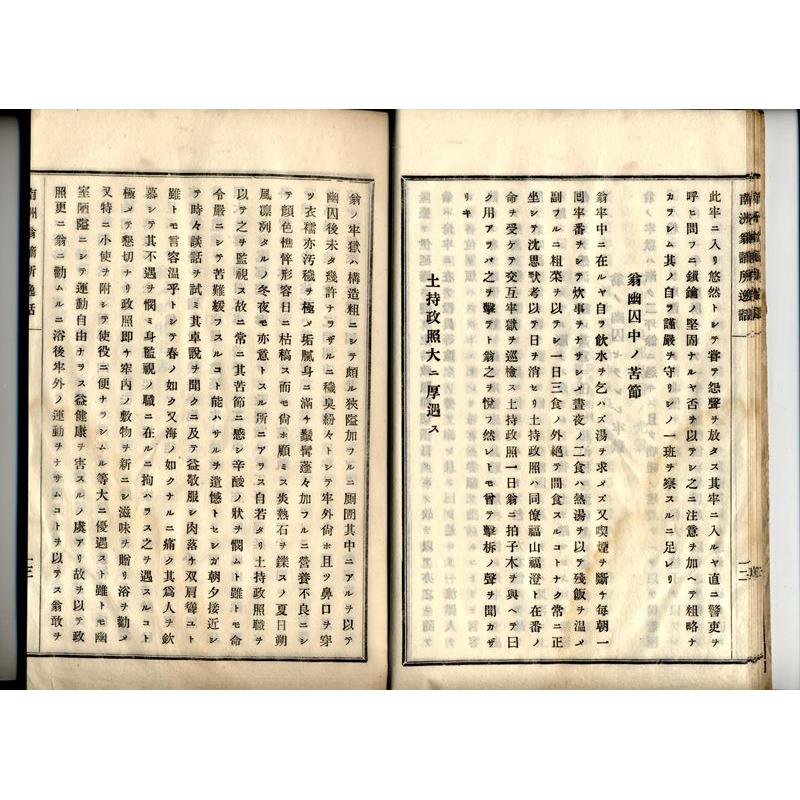 南洲翁謫所逸話
一二
此牢ニ入リ悠然トシテ嘗テ怨聲ヲ放タス其牢ニ入ルヤ直ニ警吏ヲ
呼ヒ問フニ鎖鑰ノ堅固ナルヤ否ヲ以テシ之ニ注意ヲ加ヘテ粗略ナ
カラシム其ノ自ラ謹嚴ヲ守リシノ一班ヲ察スルニ足レリ
翁幽囚中ノ苦節
翁牢中ニ在ルヤ自ラ飲水ヲ乞ハズ湯ヲ求メズ又喫煙ヲ斷チ每朝一
囘牢番ヲシテ炊事ヲナサシメ晝夜ノ二食ハ熱湯ヲ以テ殘飯ヲ温メ
副フルニ粗菜ヲ以テシ一日三食ノ外絕テ間食スルコトナク常ニ正
坐シテ沈思默考以テ日ヲ消セリ土持政照ハ同僚福山福澄ト在番ノ
命ヲ受ケテ交互牢獄ヲ巡檢ス土持政照一日翁ニ拍子木ヲ與ヘテ曰
ク用アラバ之ヲ擊テト翁之ヲ悅フ然レトモ曾テ擊柝ノ聲ヲ聞カザ
リキ
土持政照大ニ厚遇ス
翁ノ牢獄ハ構造粗ニシテ頗ル狹隘加フルニ厠圊其中ニアルヲ以テ
幽囚後未タ幾許ナラザルニ穢臭紛々トシテ牢外尙ホ且ツ鼻口ヲ穿
ツ衣襦亦汚穢ヲ極メ垢膩身ニ滿チ鬚髯蓬々加フルニ營養不良ニシ
テ顏色憔悴形容日ニ枯稿ス而モ尙ホ顧ミス炎熱石ヲ鑠スノ夏日朔
風凛冽タルノ冬夜モ亦意トスル所ニアラス自若タリ土持政照職ヲ
以テ之ヲ監視ス故ニ常ニ其苦節ニ感シ辛酸ノ狀ヲ憫ムト雖トモ命
令嚴ニシテ苦難緩フスルコト能ハサルヲ遺憾トセシガ朝夕接近シ
テ時々談話ヲ試ミ其卓說ヲ聞クニ及テ益敬服シ肉落チ双肩聳ユト
雖トモ言容温乎トシテ春ノ如ク又海ノ如クナルニ痛ク其爲人ヲ欽
慕シテ其不遇ヲ憫ミ身監視ノ職ニ在ルニ拘ハラス之ヲ遇スルコト
極メテ懇切ナリ政照卽チ窂內ノ敷物ヲ新ニシ滋味ヲ贈リ浴ヲ勸メ
又特ニ小使ヲ附シテ使役ニ便ナラシムル等大ニ優遇スト雖トモ幽
室陋隘ニシテ運動自由ナラス益健康ヲ害スルノ虞アリ故ヲ以テ政
照更ニ翁ニ勸ムルニ浴後牢外ノ運動ヲナサムコトヲ以テス翁敢テ
南洲翁謫所逸話
一三